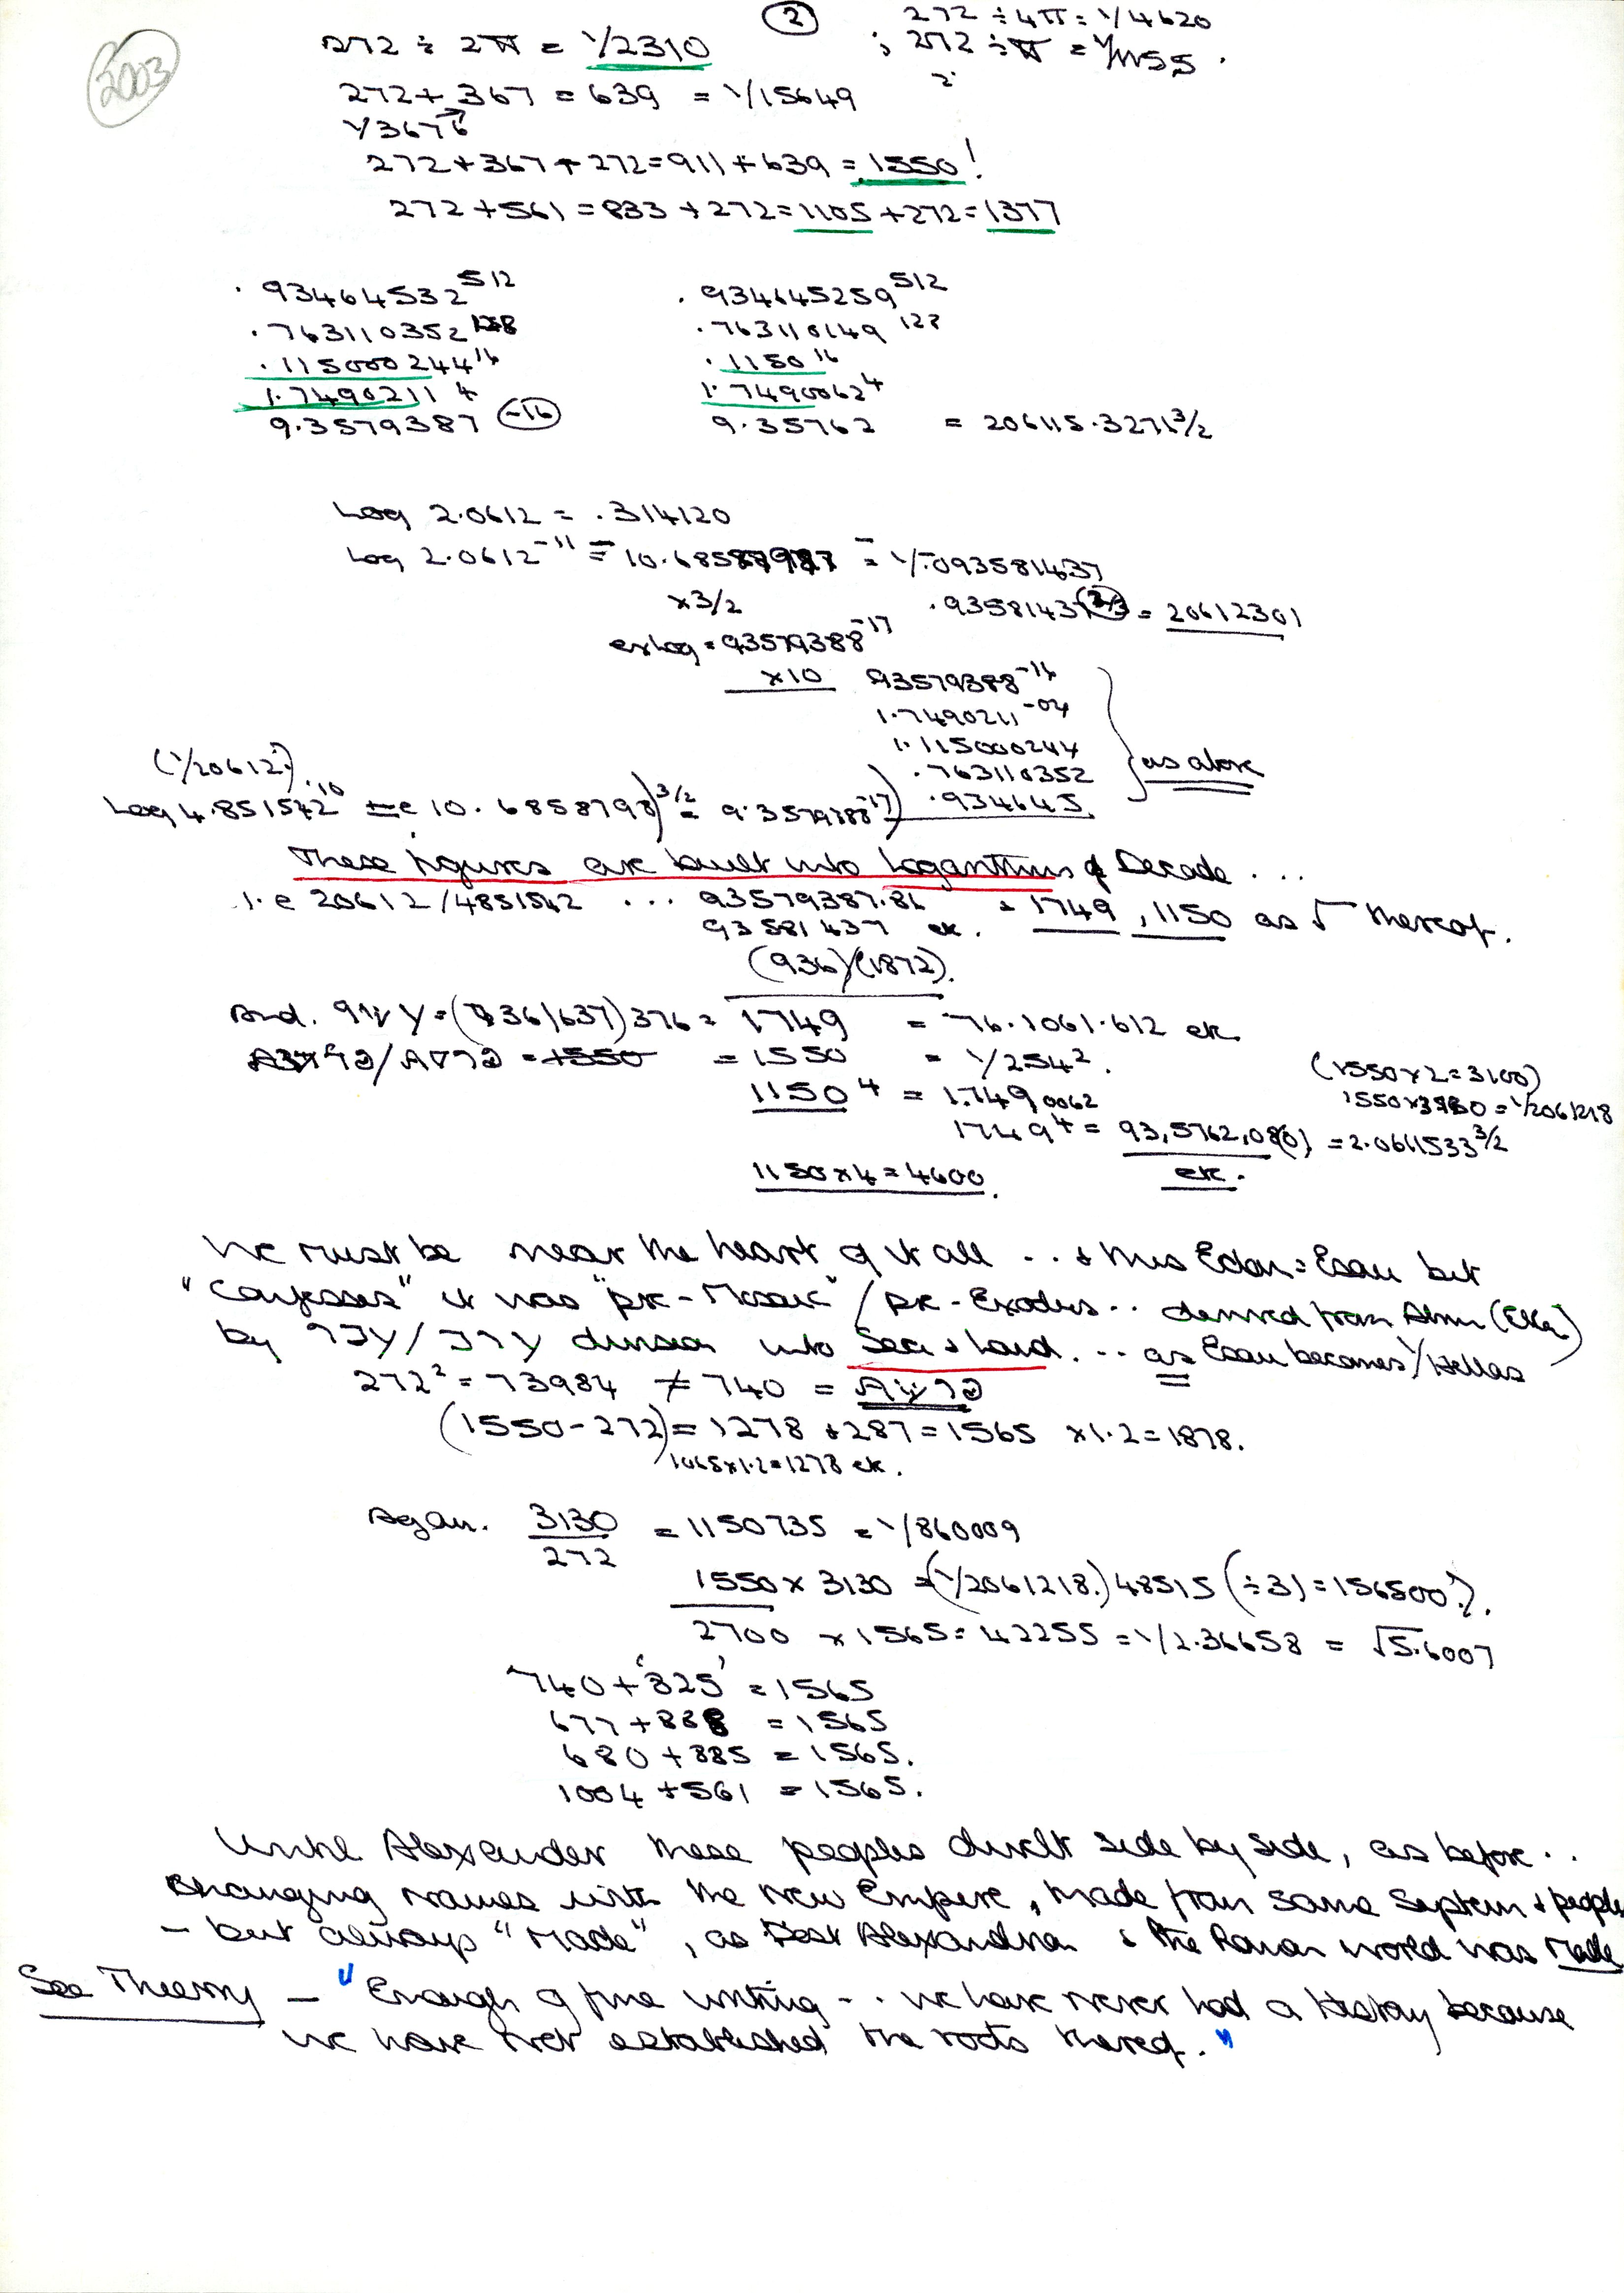 2003
②
272 ÷ 4π = 1/4620
272 ÷ 2π = 1/2310 ; 272 ÷ π/2 = 1/1155.
272 + 367 = 639 = 1/15649
1/3676
272 + 367 + 272 = 911 + 639 = 1550!
272 + 561 = 833 + 272 = 1105 + 272 = 1377
.93464532^512 .934645259^512
.763110352^128 .763110149^128
.115000244^16 .1150^16
1.7490211^4 1.7490062^4
9.3579387 (-16) 9.35762 = 206115.3271^3/2
Log 2.0612 = .314120
Log 2.0612^-11 = 10.6858798 = 1/.093581437
×3/2 .93581437^(2/3) = 20612301
exlog = 93579388^-17
×10 93579388^-16
1.7490211^-04
1.115000244
.763110352
.934645
} as above
(1/20612)
Log 4.851542^-10 = 10.6858798)^3/2 = 9.3579388^-17)
These figures are built into Logarithms of Decade ...
i.e 20612/4851542 ... 93579387.86 + 1749, 1150 as √ thereof.
93581437 etc.
(936)(1872).
And. (936/637) 376 = 1749 = 76.1061.612 etc
= 1550 = 1/254².
(1550 × 2 = 3100)
1150^4 = 1.7490062
= 1/2061218
1749^4 = 93,5762,080) = 2.0611533^3/2
1150 × 4 = 4600. etc.
We must be near the heart of it all ... & thus Edom = Esau but
"Confesses" it was "pre-Mosaic" / pre-Exodus .. derived from
by division into Sea & Land. ... as Esau becomes 1/Hellas
272² = 73984 ≠ 740 =
(1550 - 272) = 1278 + 287 = 1565 × 1.2 = 1878.
1065 × 1.2 = 1278 etc.
Again. 3130/272 = 1150735 = 1/860009
1550 × 3130 = (1/2061218.) 48515 (÷3) = 156500?).
2700 × 1565 = 42255 = 1/2.36658 = √5.6007
740 + '825' = 1565
677 + 888 = 1565
680 + 885 = 1565.
1004 + 561 = 1565.
Until Alexander these peoples dwelt side by side, as before ..
changing names with the new Empire, made from same System & people
- but always "Made", as Alexandrian & the Roman world was Made
See Theory - "Enough of fine writing .. we have never had a History because
we have not established the roots thereof."